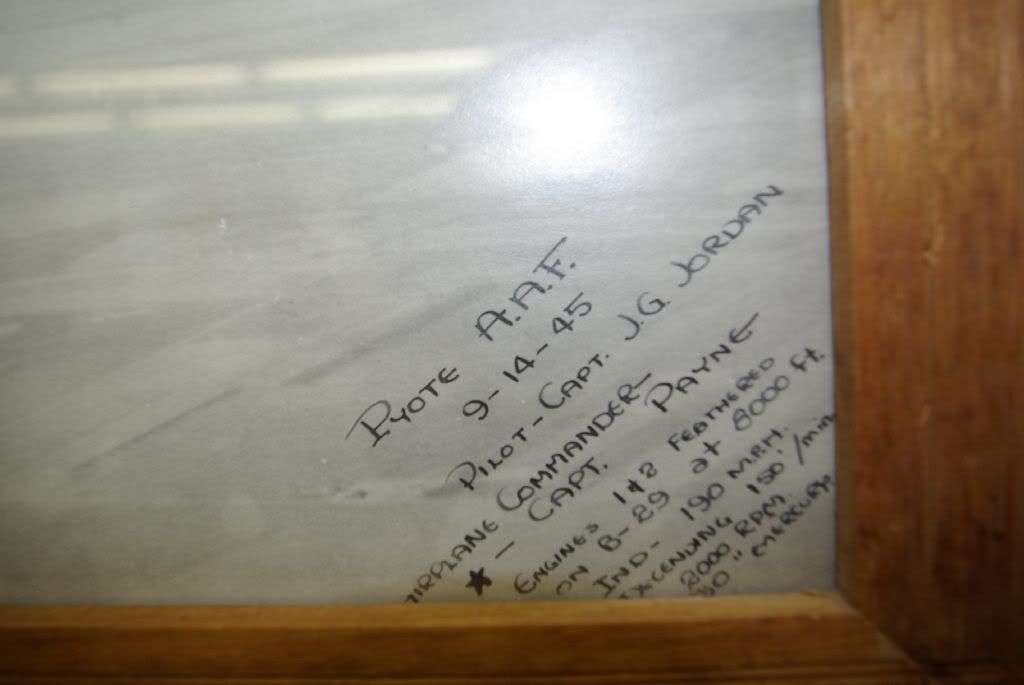 PYOTE A.A.F.
9-14-45
PILOT-CAPT. J.G. JORDAN
AIRPLANE COMMANDER-
★ - CAPT. PAYNE-
ENGINES 1+2 FEATHERED
ON B-29 at 8000 ft.
IND- 190 M.P.H.
DESCENDING 150'/min.
2000 RPM.
30" MERCURY